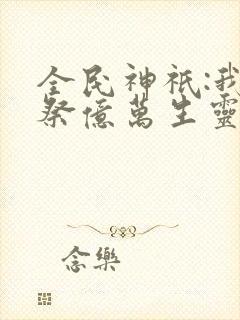 全民神祇:我
祭億萬生靈
念樂